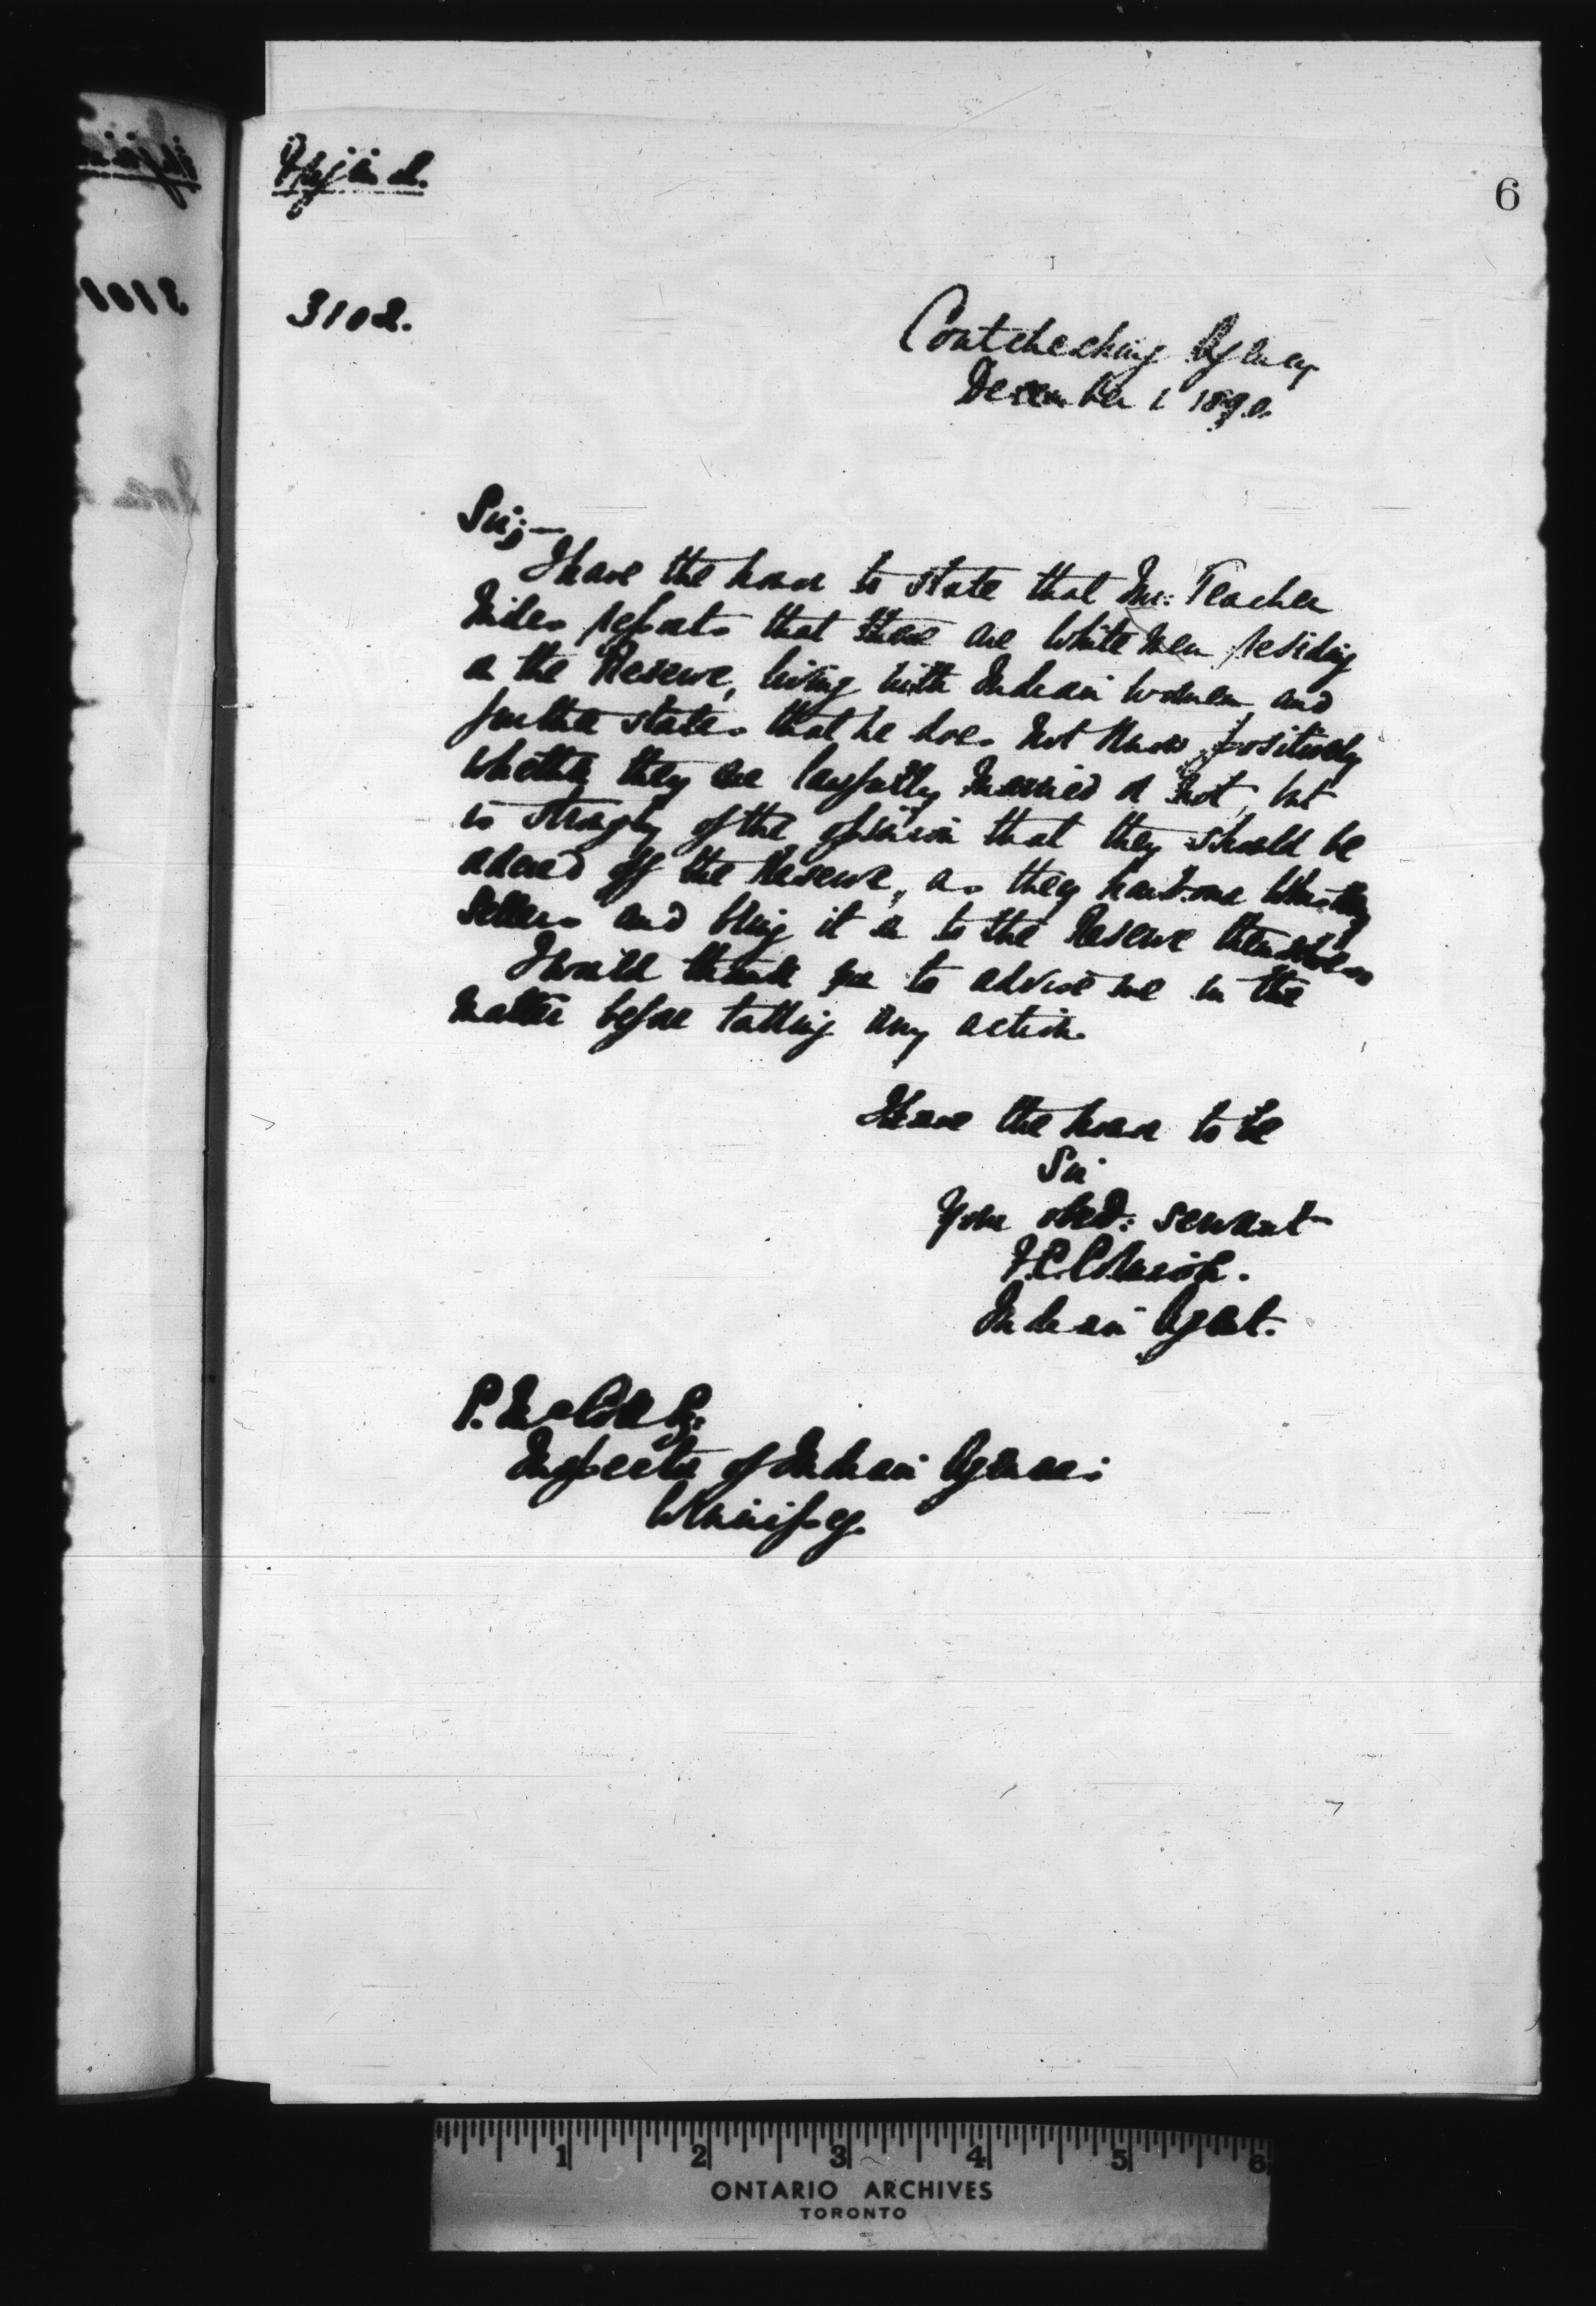 6
3102.
Coutcheching Agency
December 1 1890.
Sir;—
I have the honor to state that Mr. Teacher
reports that there are White Men residing
on the Reserve, living with Indian women and
further states that he does not know positively
whether they are lawfully married or not, but
is strongly of the opinion that they should be
ordered off the Reserve, as they harbour Whiskey
sellers and bring it on to the Reserve themselves
I would thank you to advise me in the
matter before taking any action.
I have the honor to be
Sir
Your obed: servant
Indian Agent.
Inspector of Indian Agencies
Winnipeg.
1 2 3 4 5 6
ONTARIO ARCHIVES
TORONTO